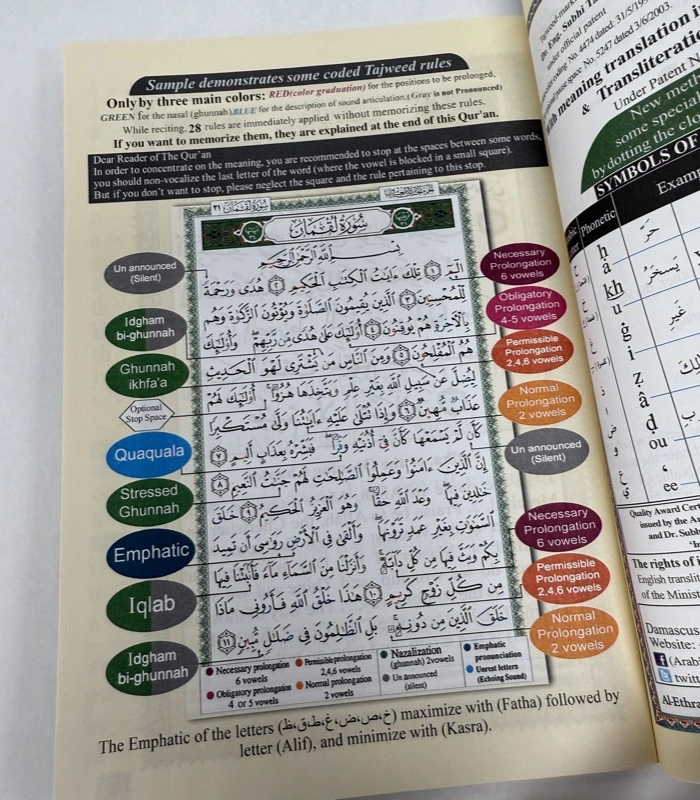 Sample demonstrates some coded Tajweed rules
Only by three main colors: RED(color graduation) for the positions to be prolonged,
GREEN for the nasal (ghunnah),BLUE for the description of sound articulation,(Gray is not Pronounced)
While reciting, 28 rules are immediately applied without memorizing these rules.
If you want to memorize them, they are explained at the end of this Qur'an.
Dear Reader of The Qur'an
In order to concentrate on the meaning, you are recommended to stop at the spaces between some words,
you should non-vocalize the last letter of the word (where the vowel is blocked in a small square).
But if you don't want to stop, please neglect the square and the rule pertaining to this stop.
سُورَةُ لُقْمَان ٣١
سُورَةُ لُقْمَان
بِسْمِ ٱللَّهِ ٱلرَّحْمَٰنِ ٱلرَّحِيمِ
الٓمٓ ١ تِلْكَ ءَايَٰتُ ٱلْكِتَٰبِ ٱلْحَكِيمِ ٢ هُدًى وَرَحْمَةً
لِّلْمُحْسِنِينَ ٣ ٱلَّذِينَ يُقِيمُونَ ٱلصَّلَوٰةَ وَيُؤْتُونَ ٱلزَّكَوٰةَ وَهُم
بِٱلْءَاخِرَةِ هُمْ يُوقِنُونَ ٤ أُو۟لَٰٓئِكَ عَلَىٰ هُدًى مِّن رَّبِّهِمْ وَأُو۟لَٰٓئِكَ
هُمُ ٱلْمُفْلِحُونَ ٥ وَمِنَ ٱلنَّاسِ مَن يَشْتَرِى لَهْوَ ٱلْحَدِيثِ
لِيُضِلَّ عَن سَبِيلِ ٱللَّهِ بِغَيْرِ عِلْمٍ وَيَتَّخِذَهَا هُزُوًا أُو۟لَٰٓئِكَ لَهُمْ
عَذَابٌ مُّهِينٌ ٦ وَإِذَا تُتْلَىٰ عَلَيْهِ ءَايَٰتُنَا وَلَّىٰ مُسْتَكْبِرًا
كَأَن لَّمْ يَسْمَعْهَا كَأَنَّ فِىٓ أُذُنَيْهِ وَقْرًا فَبَشِّرْهُ بِعَذَابٍ أَلِيمٍ ٧
إِنَّ ٱلَّذِينَ ءَامَنُوا۟ وَعَمِلُوا۟ ٱلصَّٰلِحَٰتِ لَهُمْ جَنَّٰتُ ٱلنَّعِيمِ ٨
خَٰلِدِينَ فِيهَا وَعْدَ ٱللَّهِ حَقًّا وَهُوَ ٱلْعَزِيزُ ٱلْحَكِيمُ ٩ خَلَقَ
ٱلسَّمَٰوَٰتِ بِغَيْرِ عَمَدٍ تَرَوْنَهَا وَأَلْقَىٰ فِى ٱلْأَرْضِ رَوَٰسِىَ أَن تَمِيدَ
بِكُمْ وَبَثَّ فِيهَا مِن كُلِّ دَآبَّةٍ وَأَنزَلْنَا مِنَ ٱلسَّمَآءِ مَآءً فَأَنۢبَتْنَا فِيهَا
مِن كُلِّ زَوْجٍ كَرِيمٍ ١٠ هَٰذَا خَلْقُ ٱللَّهِ فَأَرُونِى مَاذَا
خَلَقَ ٱلَّذِينَ مِن دُونِهِۦ بَلِ ٱلظَّٰلِمُونَ فِى ضَلَٰلٍ مُّبِينٍ ١١
Un announced
(Silent)
Idgham
bi-ghunnah
Ghunnah
ikhfa'a
Optional
Stop Space
Quaquala
Stressed
Ghunnah
Emphatic
Iqlab
Idgham
bi-ghunnah
Necessary
Prolongation
6 vowels
Obligatory
Prolongation
4-5 vowels
Permissible
Prolongation
2,4,6 vowels
Normal
Prolongation
2 vowels
Un announced
(Silent)
Necessary
Prolongation
6 vowels
Permissible
Prolongation
2,4,6 vowels
Normal
Prolongation
2 vowels
Necessary prolongation
6 vowels
Permissible prolongation
2,4,6 vowels
Nazalization
(ghunnah) 2vowels
Emphatic
pronunciation
Obligatory prolongation
4 or 5 vowels
Normal prolongation
2 vowels
Un announced
(silent)
Unrest letters
(Echoing Sound)
The Emphatic of the letters (خ،ص،ض،غ،ط،ق،ظ) maximize with (Fatha) followed by
letter (Alif), and minimize with (Kasra).
Dr. Eng. Subhi
under official patent
coding No. 4474 dated: 31/5/19
pause space No. 5247 dated 3/6/2003.
meaning translation
& Transliterati
Under Patent N
New meth
some speci
by dotting the clo
SYMBOLS OF
Phonetic
Examp
h
a
kh
u
ġ
i
ẓ
â
ḍ
ou
‘
ee
Quality Award Cert
issued by the A
and Dr. Subh
The rights of i
English transl
of the Minist
Damascus
Website:
(Arab
twitt
Al-Ethra